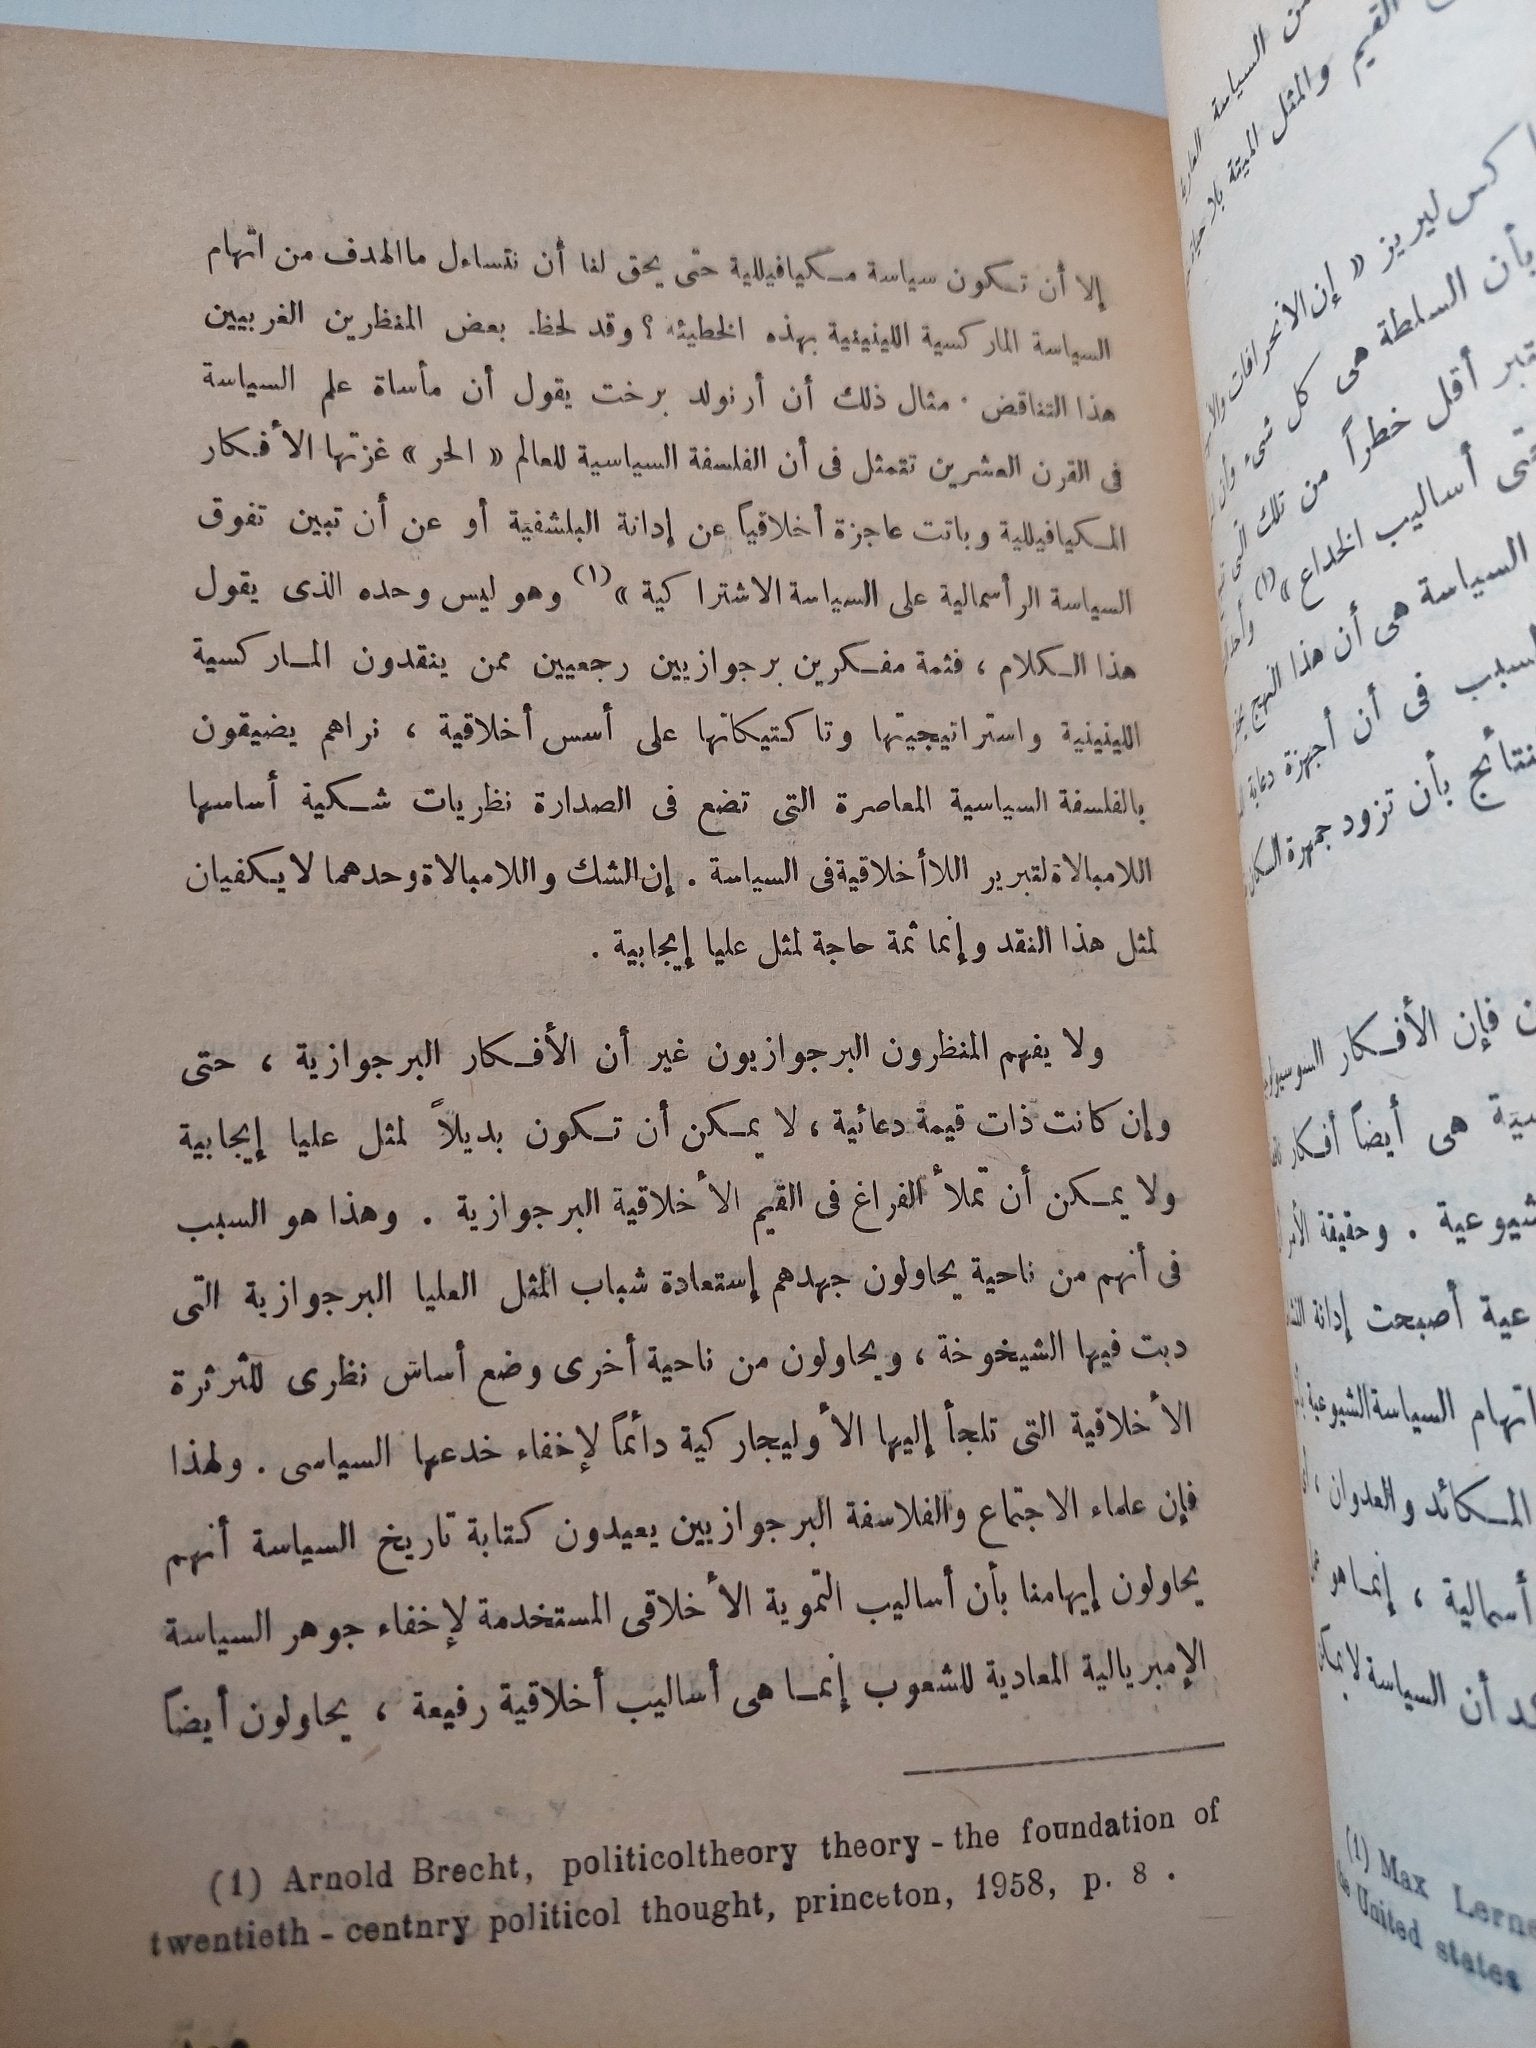 إلا أن تكون سياسة مكيافيللية حتى يحق لنا أن نتساءل ماالهدف من اتهام
السياسة الماركسية اللينينية بهذه الخطيئة ؟ وقد لحظ بعض المنظرين الغربيين
هذا التناقض . مثال ذلك أن أرنولد برخت يقول أن مأساة علم السياسة
فى القرن العشرين تتمثل فى أن الفلسفة السياسية للعالم « الحر » غزتها الأفكار
المكيافيللية وباتت عاجزة أخلاقياً عن إدانة البلشفية أو عن أن تبين تفوق
السياسة الرأسمالية على السياسة الاشتراكية »(١) وهو ليس وحده الذى يقول
هذا الكلام ، فثمة مفكرين برجوازيين رجعيين ممن ينقدون الماركسية
اللينينية واستراتيجيتها وتاكتيكاتها على أسس أخلاقية ، نراهم يضيقون
بالفلسفة السياسية المعاصرة التى تضع فى الصدارة نظريات شكية أساسها
اللامبالاة لتبرير اللاأخلاقية فى السياسة . إن الشك واللامبالاة وحدهما لا يكفيان
لمثل هذا النقد وإنما ثمة حاجة لمثل عليا إيجابية .
ولا يفهم المنظرون البرجوازيون غير أن الأفكار البرجوازية ، حتى
وإن كانت ذات قيمة دعائية ، لا يمكن أن تكون بديلاً لمثل عليا إيجابية
ولا يمكن أن تملأ الفراغ فى القيم الأخلاقية البرجوازية . وهذا هو السبب
فى أنهم من ناحية يحاولون جهدهم إستعادة شباب المثل العليا البرجوازية التى
دبت فيها الشيخوخة ، ويحاولون من ناحية أخرى وضع أساس نظرى للثرثرة
الأخلاقية التى تلجأ إليها الأوليجاركية دائماً لإخفاء خدعها السياسى . ولهذا
فإن علماء الاجتماع والفلاسفة البرجوازيين يعيدون كتابة تاريخ السياسة أنهم
يحاولون إيهامنا بأن أساليب التموية الأخلاقى المستخدمة لإخفاء جوهر السياسة
الإمبريالية المعادية للشعوب إنما هى أساليب أخلاقية رفيعة ، يحاولون أيضاً
(1) Arnold Brecht, politicoltheory theory - the foundation of
twentieth - centnry politicol thought, princeton, 1958, p. 8 .
من السياسة
القيم والمثل الميتة بلا
كس ليريز « إن الانحرافات
بأن السلطة هى كل شىء وأن
أقل خطراً من تلك التى
أساليب الخداع »(١)
السياسة هى أن هذا النهج
فى أن أجهزة دعاية
بأن تزود جمهرة السكان
فإن الأفكار
هى أيضاً أفكار
. وحقيقة الأمر
أصبحت إدانة
اتهام السياسة الشيوعية
المكائد والعدوان ،
، إنما هو
أن السياسة لا يمكن
(1) Max
United states